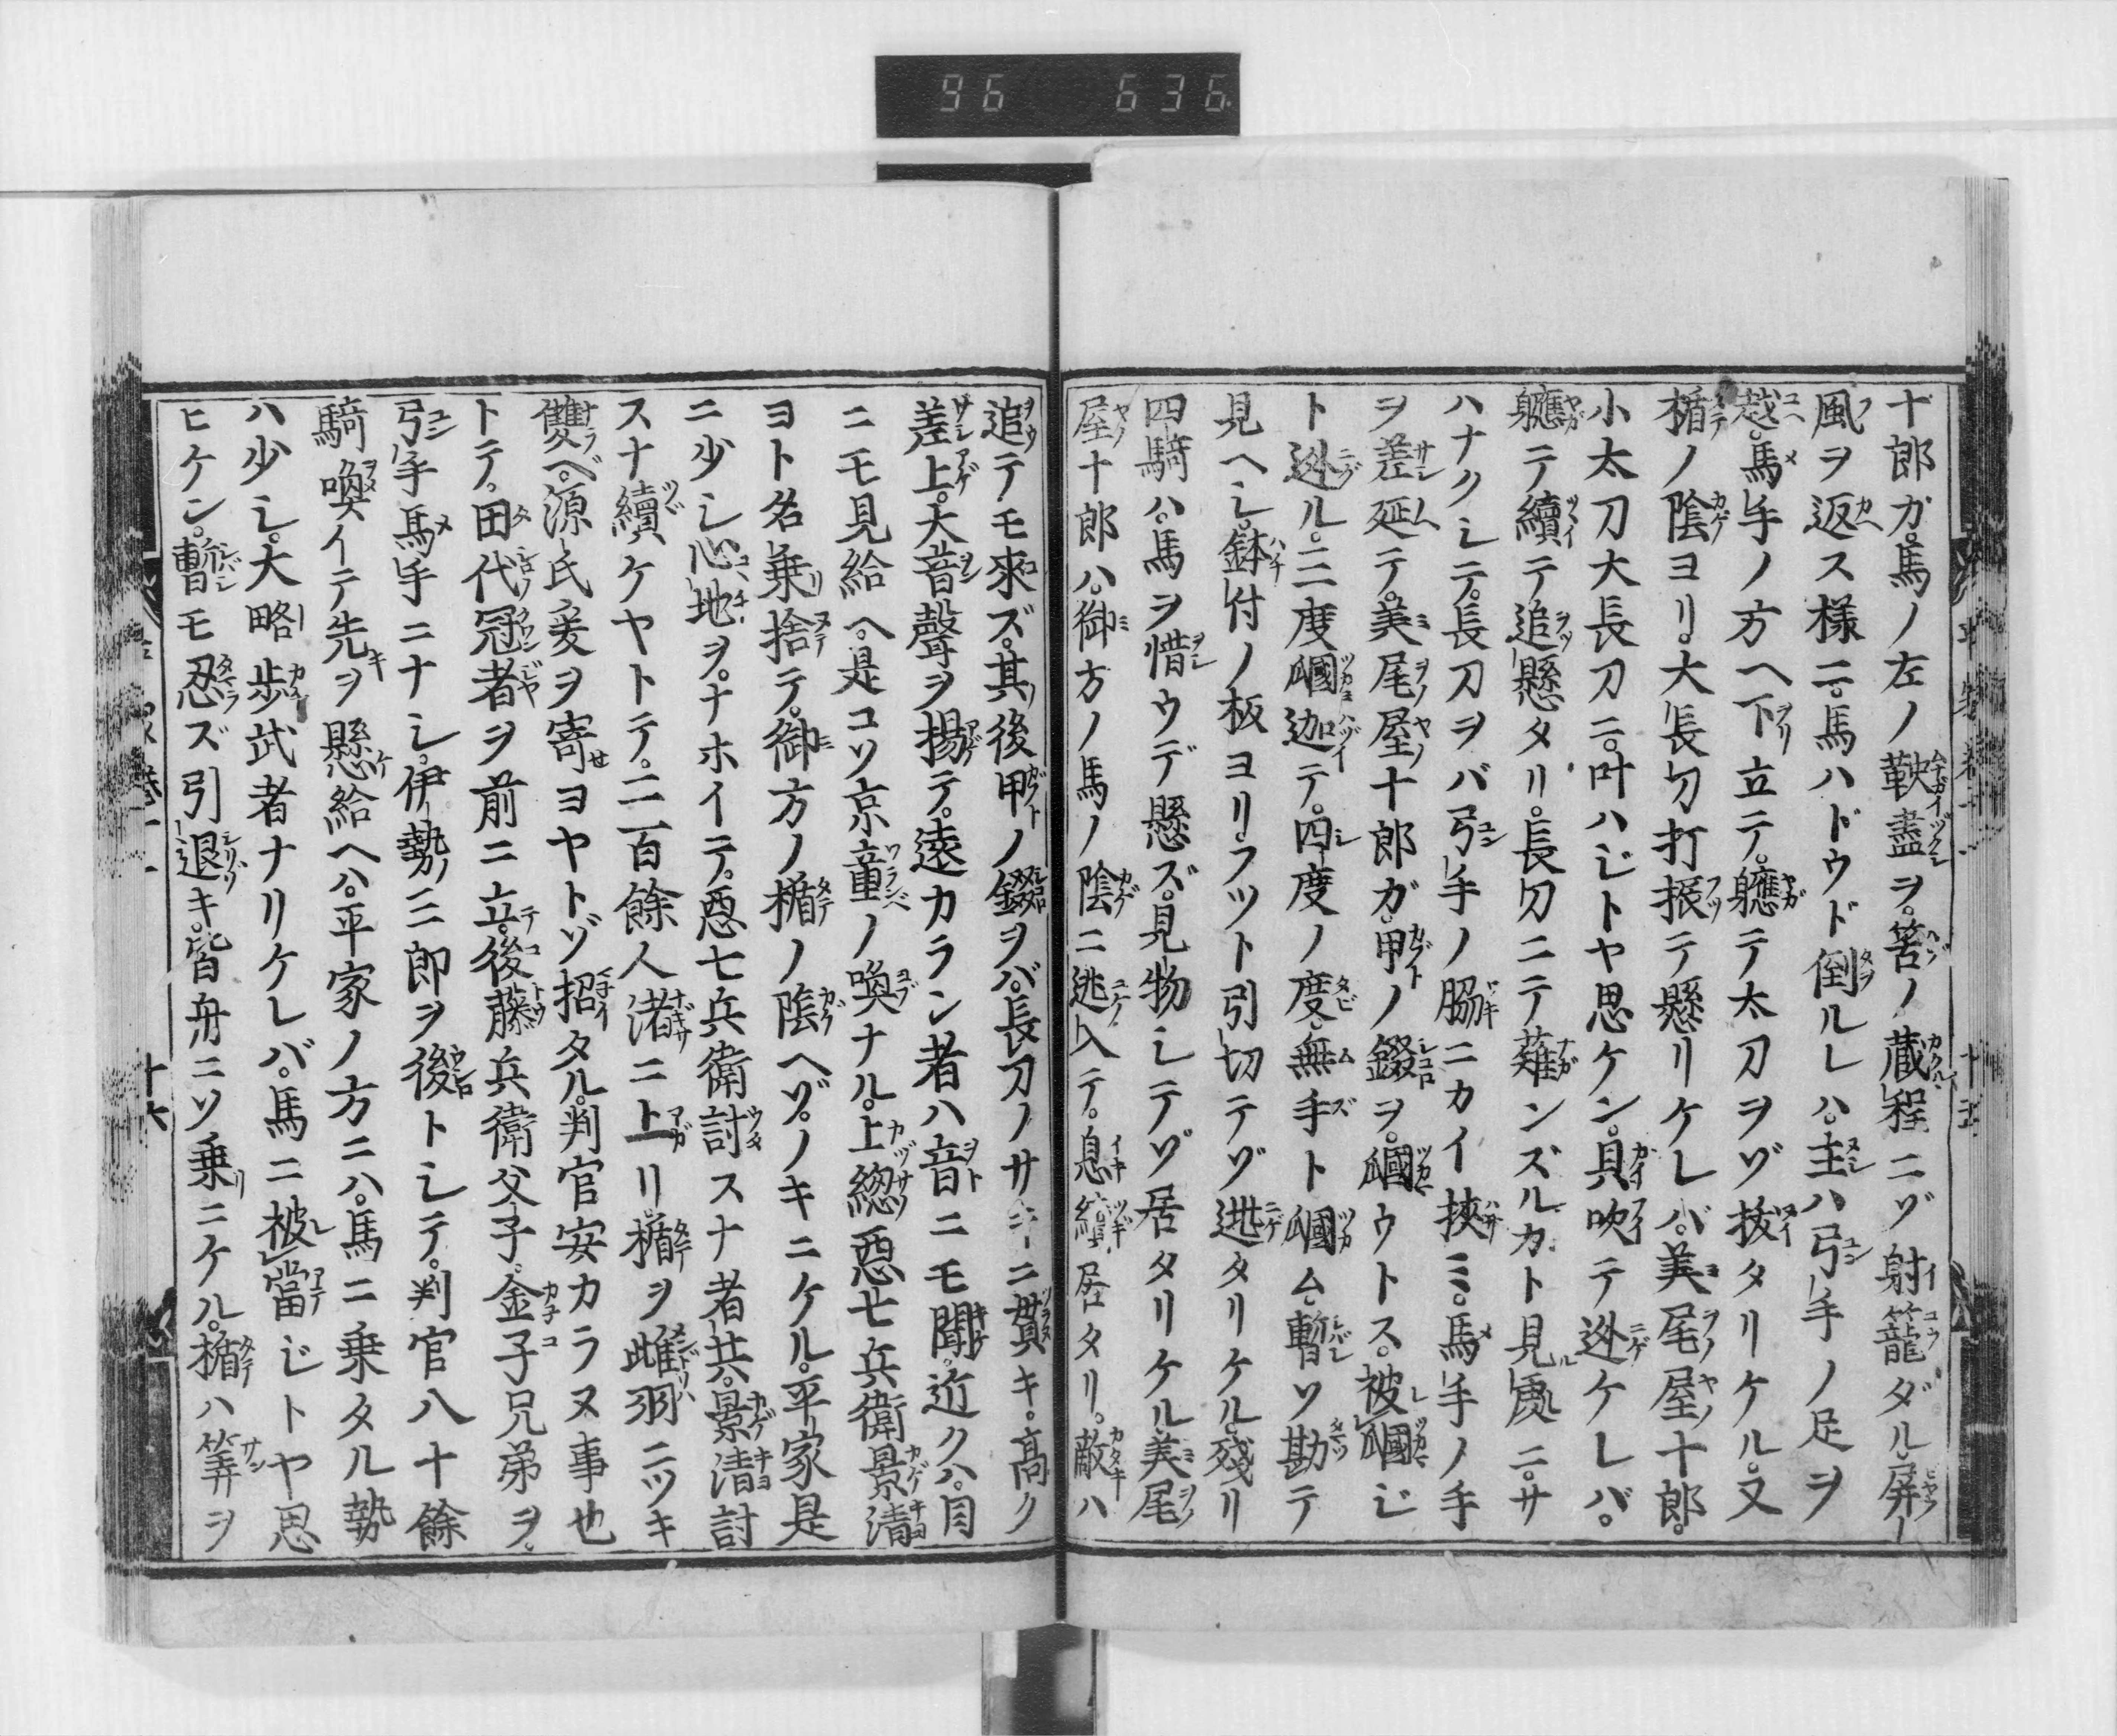 96 636
十郎ガ。馬ノ左ノ鞅盡ヲ。筈ノ藏程ニゾ射籠ダル。屏
風ヲ返ス様ニ。馬ハドウド倒ルレハ。主ハ弓手ノ足ヲ
越。馬手ノ方ヘ下立テ。軈テ太刀ヲゾ拔タリケル。又
楯ノ陰ヨリ。大長刀打振テ懸リケレバ。美尾屋十郎。
小太刀大長刀ニ。叶ハジトヤ思ケン。貝吹テ迯ケレバ。
軈テ續テ追懸タリ。長刀ニテ薙ンズルカト見處ニ。サ
ハナクシテ。長刀ヲバ弓手ノ脇ニカイ挾ミ。馬手ノ手
ヲ差延テ。美尾屋十郎ガ。甲ノ錣ヲ。𤔩ウトス。被𤔩ジ
ト迯ル。三度𤔩迦テ。四度ノ度。無手ト𤔩ム。暫ソ勘テ
見ヘシ。鉢付ノ板ヨリ。フツト引切テゾ逃タリケル。殘リ
四騎ハ。馬ヲ惜ウデ懸ズ。見物シテゾ居タリケル。美尾
屋十郎ハ。御方ノ馬ノ陰ニ逃入テ。息續居タリ。敵ハ
追テモ來ズ。其後甲ノ錣ヲバ。長刀ノサキニ貫キ。高ク
差上。大音聲ヲ揚テ。遠カラン者ハ音ニモ聞。近クハ。目
ニモ見給ヘ。是コソ京童ノ喚ナル。上総惡七兵衛景清
ヨト名乗捨テ。御方ノ楯ノ陰ヘゾ。ノキニケル。平家是
ニ少シ心地ヲ。ナホイテ。惡七兵衛討スナ者共。景清討
スナ續ケヤトテ。二百餘人渚ニ上リ。楯ヲ雌羽ニツキ
雙ベ。源氏爰ヲ寄ヨヤトゾ招タル。判官安カラヌ事也
トテ。田代冠者ヲ前ニ立。後藤兵衛父子。金子兄弟ヲ。
弓手馬手ニナシ。伊勢三郎ヲ後トシテ。判官八十餘
騎喚イテ先ヲ懸給ヘハ。平家ノ方ニハ。馬ニ乗タル勢
ハ少シ。大略歩武者ナリケレバ。馬ニ被當ジトヤ思
ヒケン。暫モ忍ズ引退キ。皆舟ニソ乗ニケル。楯ハ筭ヲ
十六